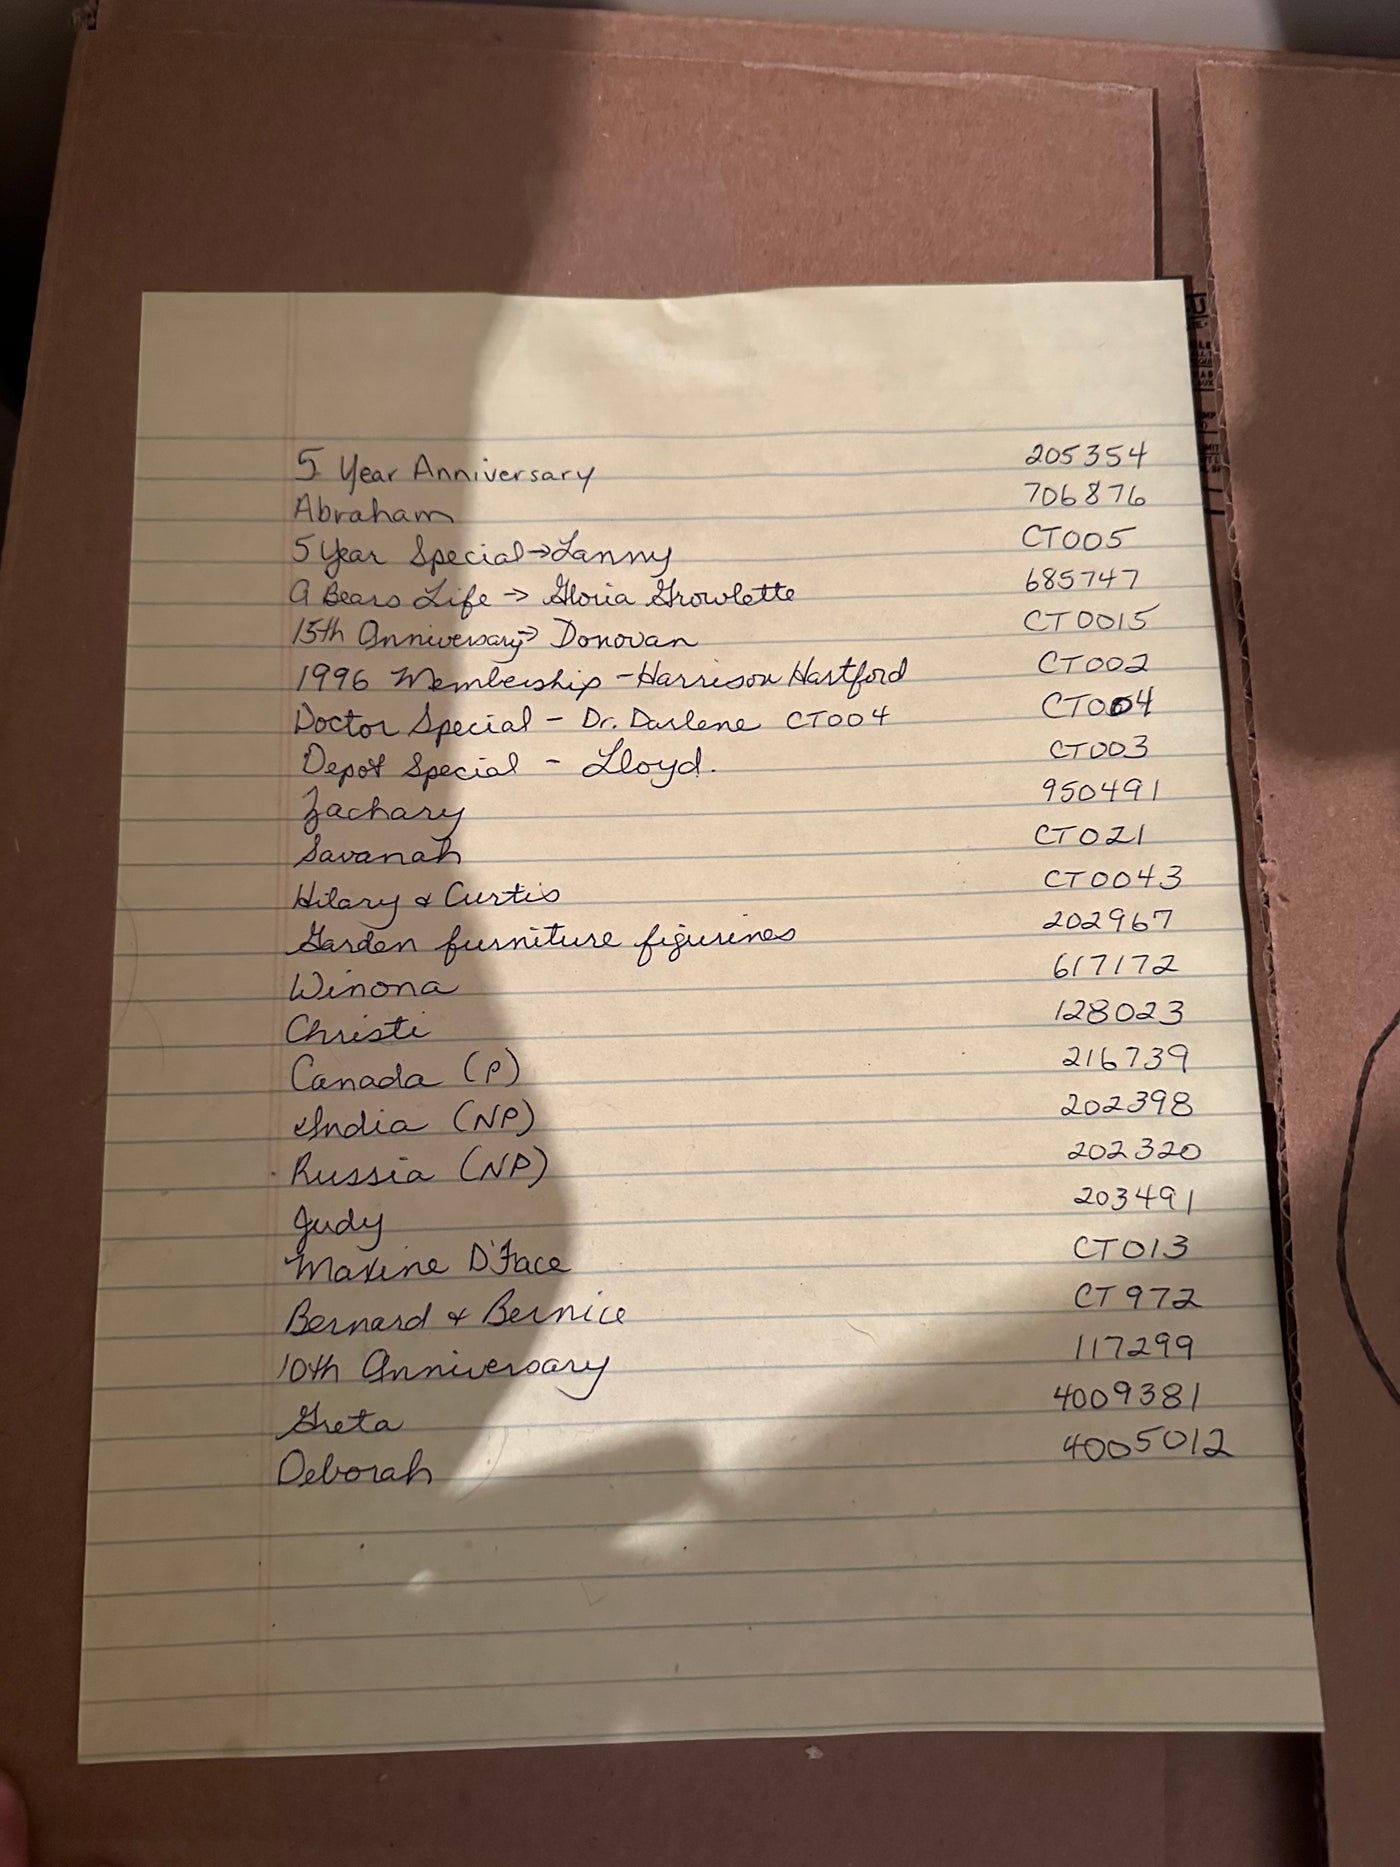 5 Year Anniversary 205354
Abraham 706876
5 Year Special → Lanny CT005
A Bears Life → Gloria Growlette 685747
15th Anniversary → Donovan CT0015
1996 Membership - Harrison Hartford CT002
Doctor Special - Dr. Darlene CT004 CT004
Depot Special - Lloyd. CT003
Zachary 950491
Savanah CT021
Hilary & Curtis CT0043
Garden furniture figurines 202967
Winona 617172
Christi 128023
Canada (P) 216739
India (NP) 202398
Russia (NP) 202320
Judy 203491
Maxine D'Face CT013
Bernard & Bernice CT972
10th Anniversary 117299
Greta 4009381
Deborah 4005012